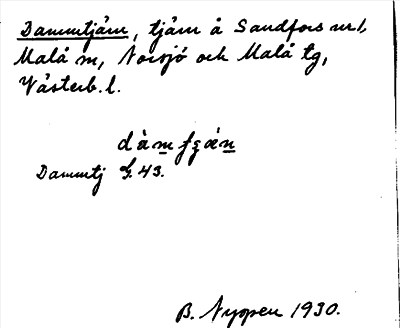 Dammtjärn, tjärn å Sandfors nr 1,
Malå m, Norsjö och Malå tg,
Västerb. l.
dàm
Dammtj S. 43.
B. Nyman 1930.